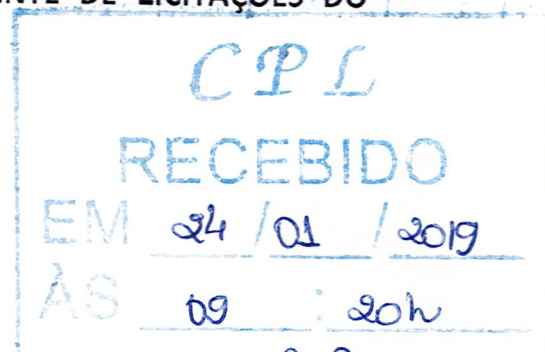 DE LICITAÇÕES DO
CPL
RECEBIDO
EM 24/01/2019
ÀS 09:20h